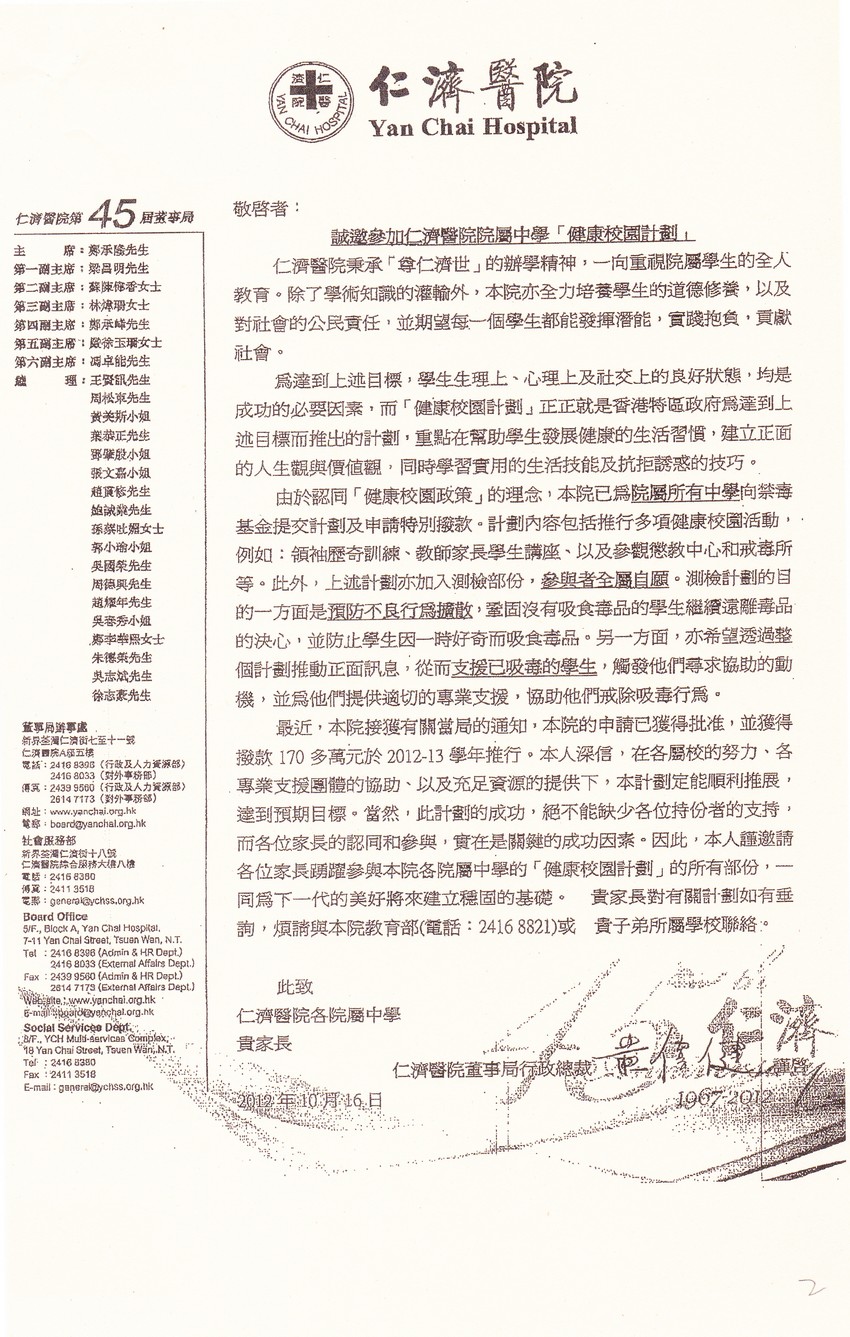 仁濟醫院
YAN CHAI HOSPITAL
仁濟醫院
Yan Chai Hospital
仁濟醫院第45屆董事局
主　　席：鄭承隆先生
第一副主席：梁昌明先生
第二副主席：蘇陳偉香女士
第三副主席：林煒珊女士
第四副主席：鄭承峰先生
第五副主席：嚴徐玉珊女士
第六副主席：馮卓能先生
總　　理：王賢訊先生
周松東先生
黃美斯小姐
葉恭正先生
鄧肇殷小姐
張文嘉小姐
郭小瑜小姐
吳國榮先生
周德興先生
趙耀年先生
朱德榮先生
吳志斌先生
徐志豪先生
董事局辦事處
新界荃灣仁濟街七至十一號
仁濟醫院A座五樓
電話：2416 8396 (行政及人力資源部)
2416 8033 (對外事務部)
傳真：2439 9560 (行政及人力資源部)
2614 7173 (對外事務部)
網址：www.yanchai.org.hk
電郵：board@yanchai.org.hk
社會服務部
新界荃灣仁濟街十八號
仁濟醫院綜合服務大樓八樓
電話：2416 8380
傳真：2411 3518
電郵：general@ychss.org.hk
Board Office
5/F., Block A, Yan Chai Hospital,
7-11 Yan Chai Street, Tsuen Wan, N.T.
Tel : 2416 8396 (Admin & HR Dept.)
2416 8033 (External Affairs Dept.)
Fax : 2439 9560 (Admin & HR Dept.)
2614 7173 (External Affairs Dept.)
Website : www.yanchai.org.hk
E-mail : board@yanchai.org.hk
Social Services Dept.
8/F., YCH Multi-services Complex,
18 Yan Chai Street, Tsuen Wan, N.T.
Tel : 2416 8380
Fax : 2411 3518
E-mail : general@ychss.org.hk
敬啓者：
誠邀參加仁濟醫院院屬中學「健康校園計劃」
仁濟醫院秉承「尊仁濟世」的辦學精神，一向重視院屬學生的全人
教育。除了學術知識的灌輸外，本院亦全力培養學生的道德修養，以及
對社會的公民責任，並期望每一個學生都能發揮潛能，實踐抱負，貢獻
社會。
為達到上述目標，學生生理上、心理上及社交上的良好狀態，均是
成功的必要因素，而「健康校園計劃」正正就是香港特區政府為達到上
述目標而推出的計劃，重點在幫助學生發展健康的生活習慣，建立正面
的人生觀與價值觀，同時學習實用的生活技能及抗拒誘惑的技巧。
由於認同「健康校園政策」的理念，本院已為院屬所有中學向禁毒
基金提交計劃及申請特別撥款。計劃內容包括推行多項健康校園活動，
例如：領袖歷奇訓練、教師家長學生講座、以及參觀懲教中心和戒毒所
等。此外，上述計劃亦加入測檢部份，參與者全屬自願。測檢計劃的目
的一方面是預防不良行為擴散，鞏固沒有吸食毒品的學生繼續遠離毒品
的決心，並防止學生因一時好奇而吸食毒品。另一方面，亦希望透過整
個計劃推動正面訊息，從而支援已吸毒的學生，觸發他們尋求協助的動
機，並為他們提供適切的專業支援，協助他們戒除吸毒行為。
最近，本院接獲有關當局的通知，本院的申請已獲得批准，並獲得
撥款 170 多萬元於 2012-13 學年推行。本人深信，在各屬校的努力、各
專業支援團體的協助、以及充足資源的提供下，本計劃定能順利推展，
達到預期目標。當然，此計劃的成功，絕不能缺少各位持份者的支持，
而各位家長的認同和參與，實在是關鍵的成功因素。因此，本人謹邀請
各位家長踴躍參與本院各院屬中學的「健康校園計劃」的所有部份，一
同為下一代的美好將來建立穩固的基礎。　貴家長對有關計劃如有垂
詢，煩請與本院教育部(電話：2416 8821)或　貴子弟所屬學校聯絡。
此致
仁濟醫院各院屬中學
貴家長
仁濟醫院董事局行政總裁
謹啓
2012 年 10 月 16 日
仁濟
1967-2012
2